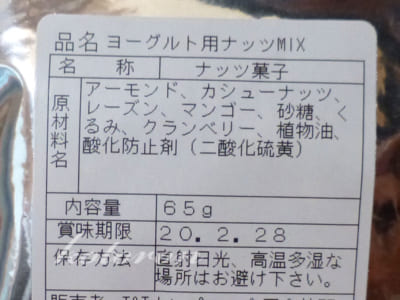 品名 ヨーグルト用ナッツMIX
名 称 ナッツ菓子
原材料名 アーモンド、カシューナッツ、
レーズン、マンゴー、砂糖、く
るみ、クランベリー、植物油、
酸化防止剤（二酸化硫黄）
内容量 65g
賞味期限 20.2.28
保存方法 直射日光、高温多湿な
場所はお避け下さい。